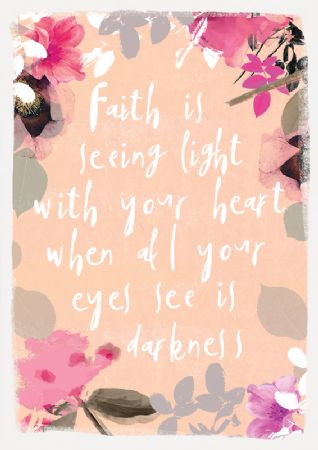 Faith is
seeing light
with your heart
when all your
eyes see is
darkness